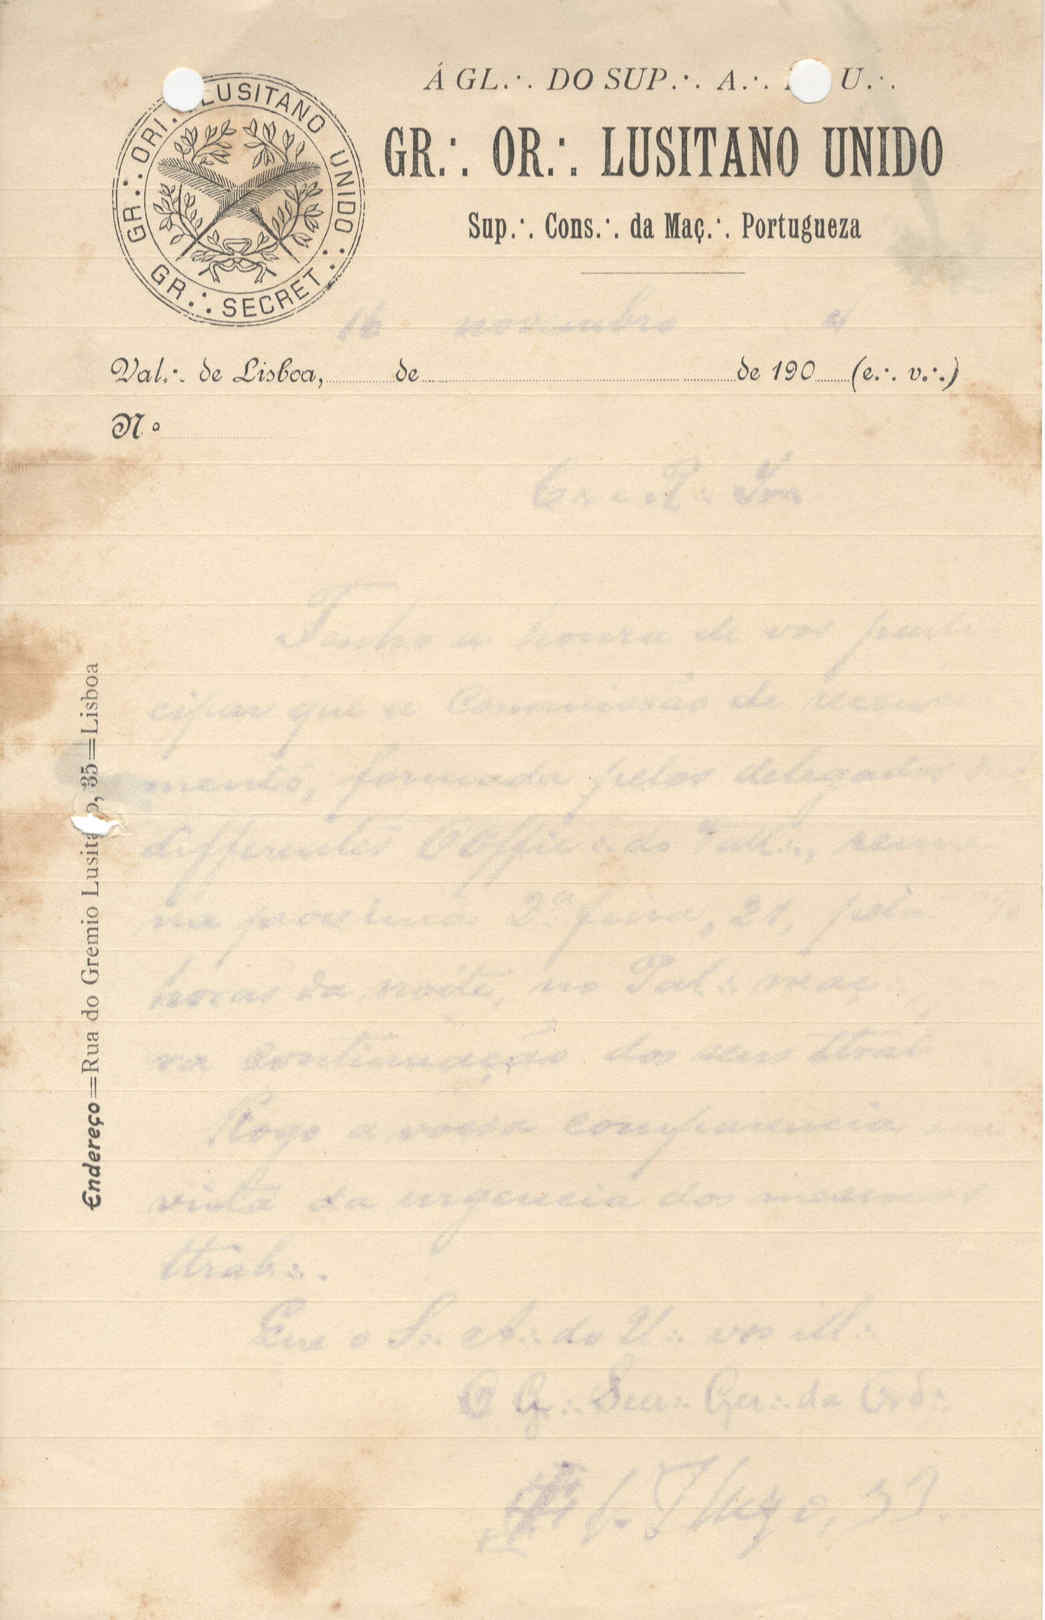 Á GL.·. DO SUP.·. A.·. U.·.
GR.·. OR.·. LUSITANO UNIDO
Sup.·. Cons.·. da Maç.·. Portugueza
GR.·. ORI.·. LUSITANO UNIDO.·.
GR.·. SECRET.·.
16 novembro 4
Val.·. de Lisboa, de de 190 (e.·. v.·.)
N.º
C.·. e R.·. Ir.·.
Tenho a honra de vos parti
cipar que a Commissão de recensea
mento, formada pelos delegados das
differentes OOffic.·. do Vall.·., reune
na proxima 2.ª feira, 21, pelas
horas da noite, no Pal.·. maç.·.
na continuação dos seus ttrab
Rogo a vossa comparencia em
vista da urgencia dos mesmos
ttrab.·.
Que o S.·. A.·. do U.·. vos ill.·.
O G.·. Secr.·. Ger.·. da Ord.·.
33
Endereço=Rua do Gremio Lusitano, 35=Lisboa